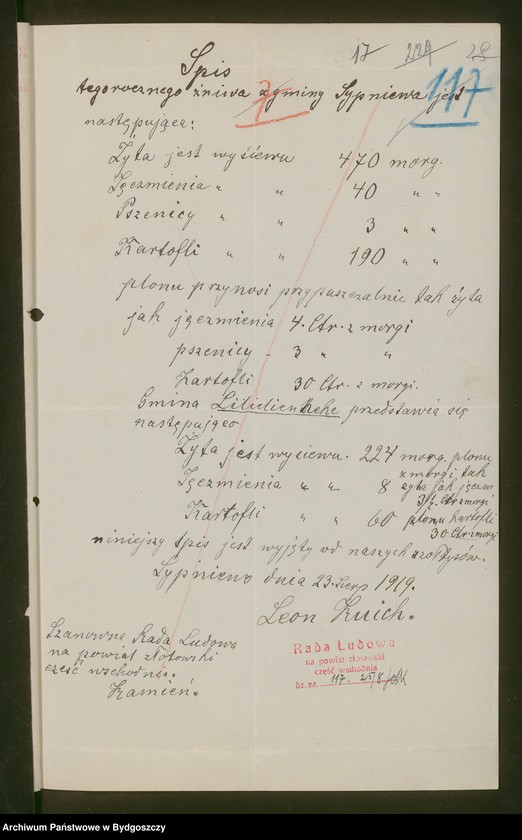 17 229 28
Spis 117
tegorocznego żniwa 7 z gminy Sypniewa jest
następująca:
Żyta jest wyśiewu 470 morg.
Jęczmienia " " 40 " "
Pszenicy " " 3 " "
Kartofli " " 190 " "
plonu przynosi przypuszczalnie tak żyta
jak jęczmienia 4. Ctr. z morgi
pszenicy - 3 " "
Kartofli 30 Ctr. z morgi.
Gmina przedstawia się
następująco
Żyta jest wysiewu. 224 morg. plonu
z morgi tak
Jęczmienia " " 8 żyta jak jęczm.
3½ Ctr z morgi
Kartofli " " 60 plonu kartofli
30 Ctr z morgi
niniejszy spis jest wyjęty od naszych szołtysów.
Sypniewo dnia 23. Sierp 1919.
Leon
Szanowna Rada Ludowa
na powiat złotowski
cześć wschodnia.
Kamień.
Rada Ludowa
na powiat złotowski
część wschodnia
dz. nr. 117. 25/8
Archiwum Państwowe w Bydgoszczy